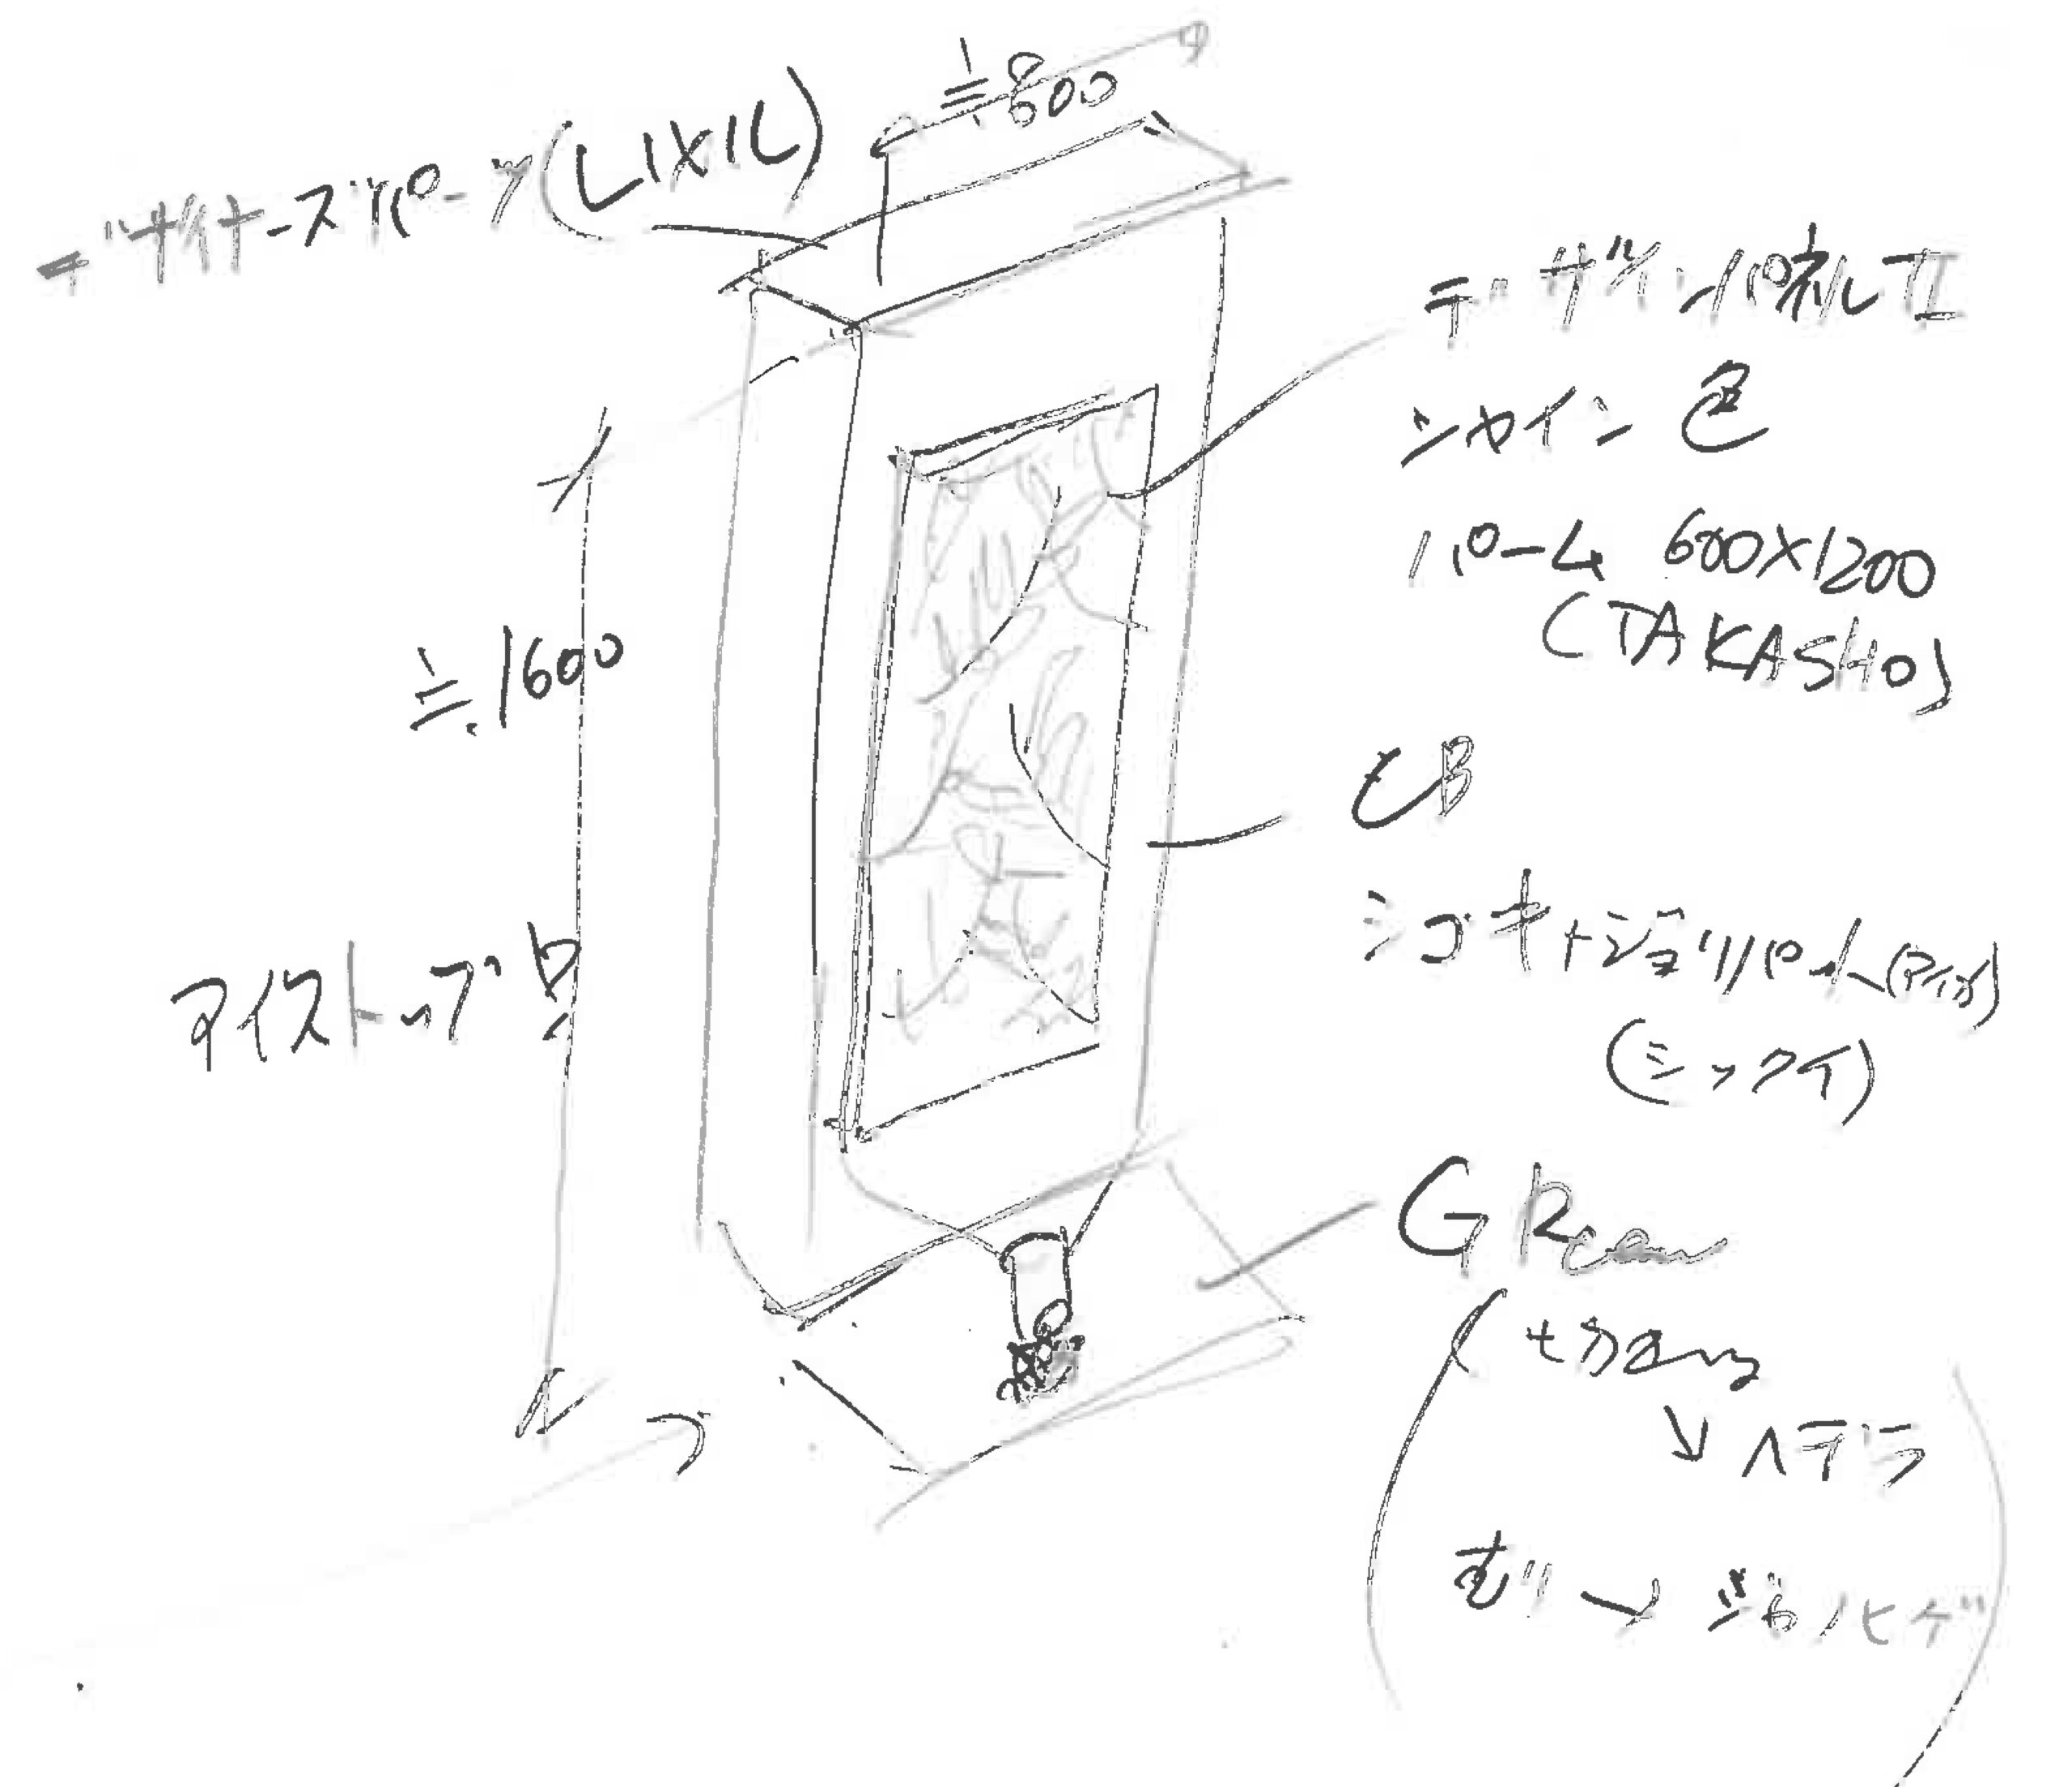 ≒800
デザイナースパーツ(LIXIL)
デザインパネルII
シャイン色
パーム 600×1200
(TAKASHO)
≒1600
CB
シゴキ+ジョリパット(アイカ)
アイストップ
GReen
→ ヘデラ
→